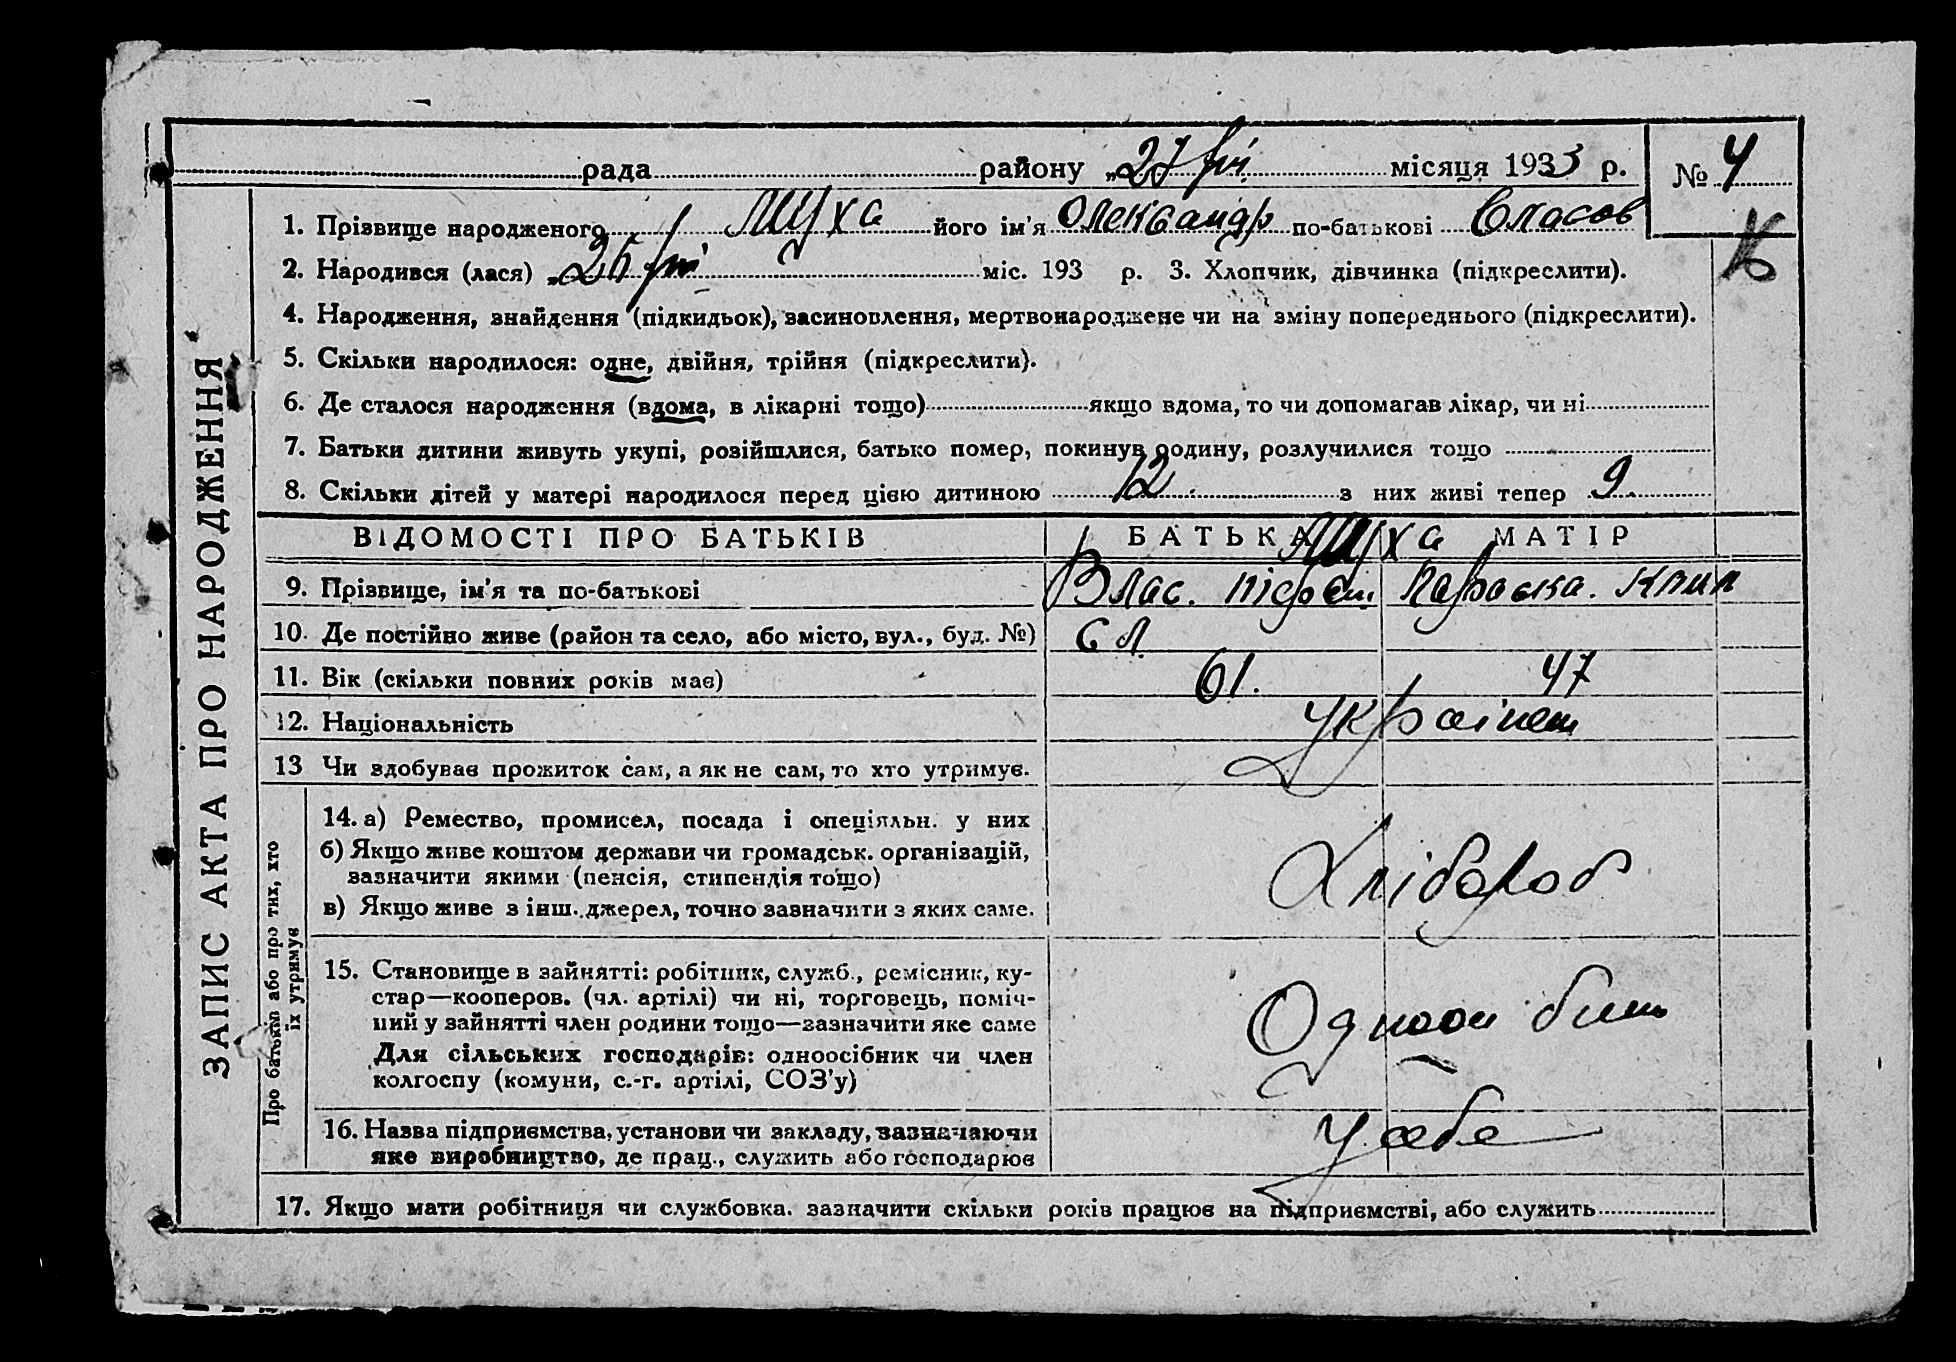 рада районну „27 місяця 1933 р. № 4
1. Прізвище народженого Муха його ім'я Олександр по-батькові Власов
К
2. Народився (лася) „26 міс. 193 р. 3. Хлопчик, дівчинка (підкреслити).
4. Народження, знайдення (підкидьок), засиновлення, мертвонароджене чи на зміну попереднього (підкреслити).
5. Скільки народилося: одне, двійня, трійня (підкреслити).
6. Де сталося народження (вдома, в лікарні тощо) якщо вдома, то чи допомагав лікар, чи ні
7. Батьки дитини живуть укупі, розійшлися, батько помер, покинув родину, розлучилися тощо
8. Скільки дітей у матері народилося перед цією дитиною 12 з них живі тепер 9
ВІДОМОСТІ ПРО БАТЬКІВ БАТЬКА Муха МАТІР
9. Прізвище, ім'я та по-батькові Влас. Параска. Клим
10. Де постійно живе (район та село, або місто, вул., буд. №)
11. Вік (скільки повних років має) 61. 47
12. Національність Українці
13 Чи здобував прожиток сам, а як не сам, то хто утримує.
14. а) Ремество, промисел, посада і спеціяльн. у них
б) Якщо живе коштом держави чи громадськ. організацій,
зазначити якими (пенсія, стипендія тощо)
в) Якщо живе з інш. джерел, точно зазначити з яких саме.
Хлібороб
15. Становище в зайнятті: робітник, служб., ремісник, ку-
стар—кооперов. (чл. артілі) чи ні, торговець, поміч-
ний у зайнятті член родини тощо—зазначити яке саме
Для сільських господарів: одноосібник чи член
колгоспу (комуни, с.-г. артілі, СОЗ'у)
16. Назва підприємства, установи чи закладу, зазначаючи
яке виробництво, де прац., служить або господарює
У себе
17. Якщо мати робітниця чи службовка. зазначити скільки років працює на підприємстві, або служить
ЗАПИС АКТА ПРО НАРОДЖЕННЯ
Про батьків або про тих, хто
їх утримує